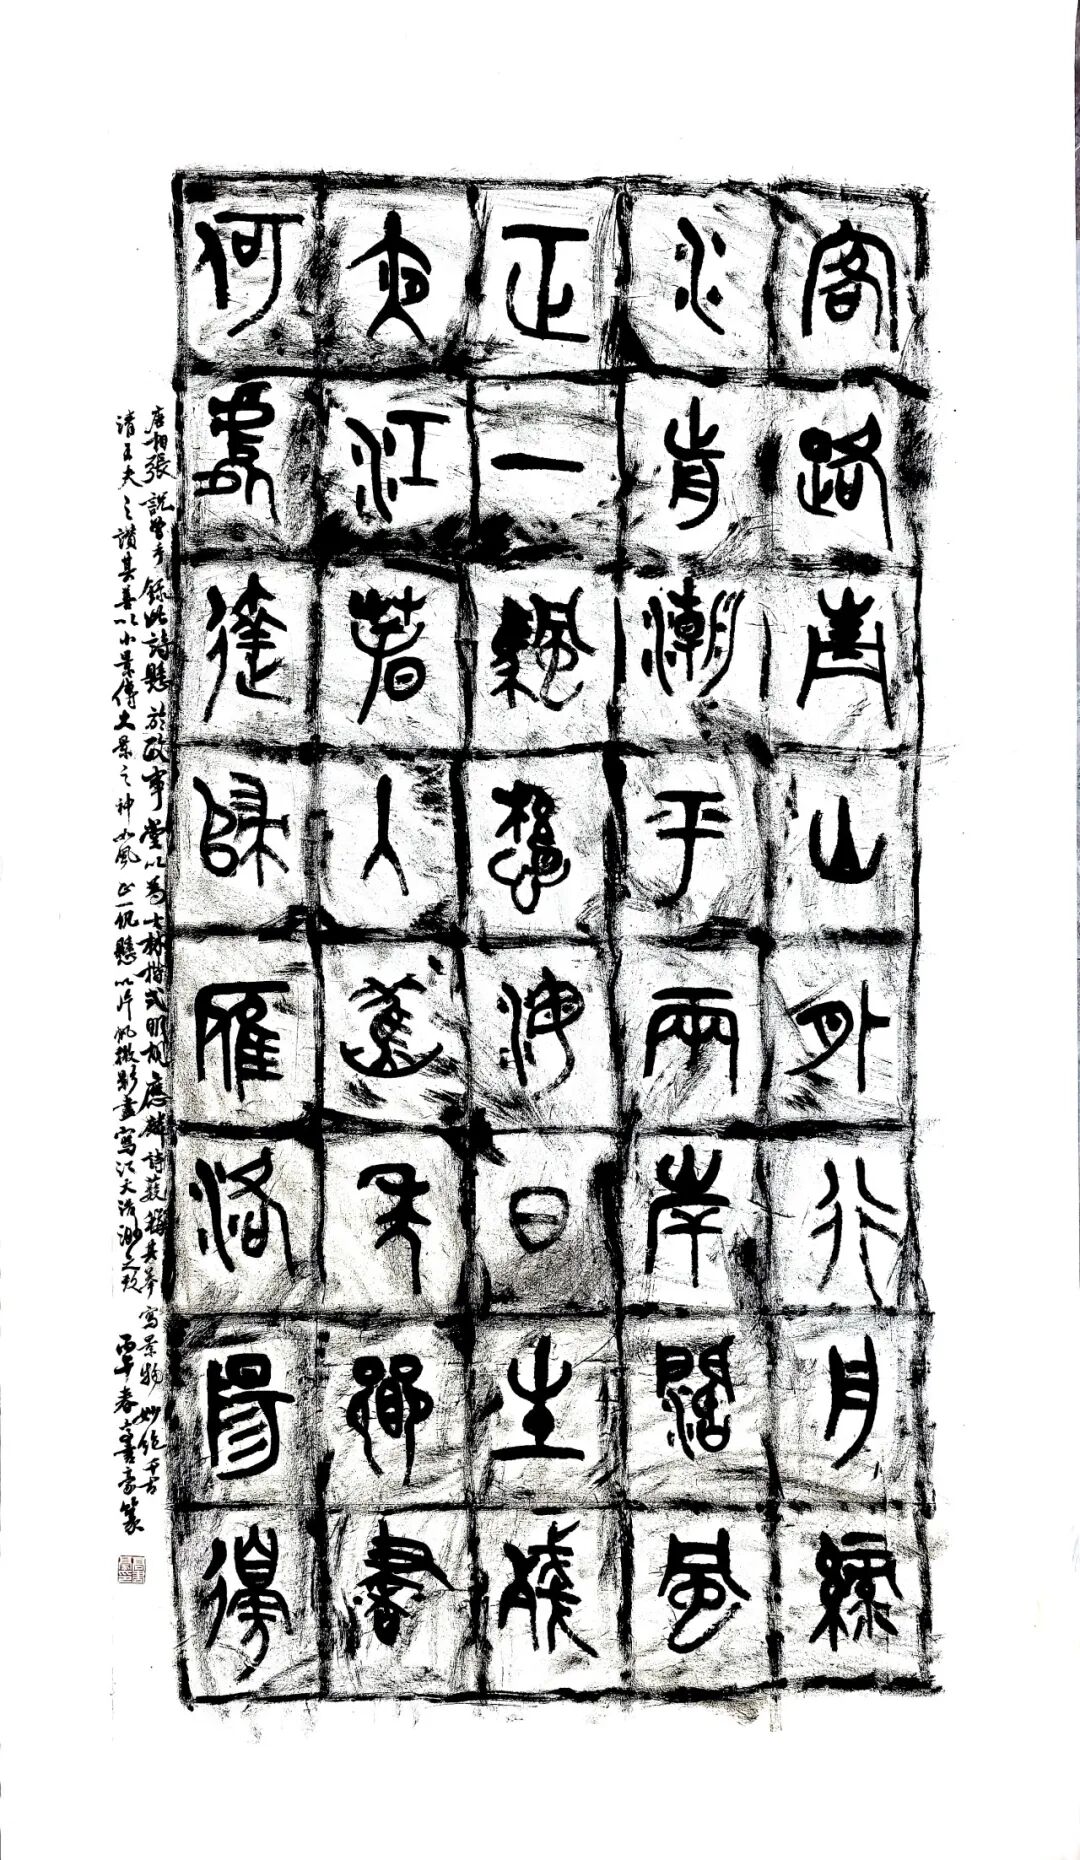 客路青山外行舟綠
水前潮平兩岸闊風
正一帆懸海日生殘
夜江春入舊年鄉書
何處達歸雁洛陽邊
唐相張說曾手錄此詩懸於政事堂以為士林楷式明胡應麟詩藪稱其摹寫景物妙絕千古
清王夫之讚其善以小景傳大景之神風正一帆懸以片帆微影盡寫江天浩渺之致 丙午春書豪篆